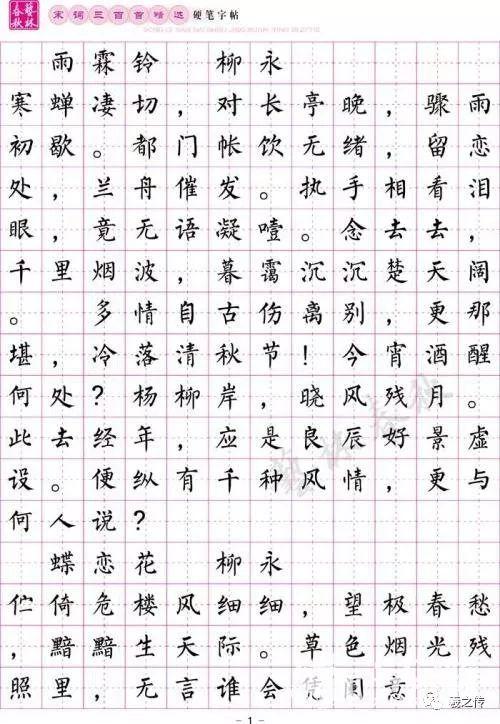 藝林春秋 宋词三百首精选 硬笔字帖
SONG CI SAN BAI SHOU JING XUAN YING BI ZI TIE
雨霖铃 柳永
寒蝉凄切，对长亭晚，骤雨
初歇。都门帐饮无绪，留恋
处，兰舟催发。执手相看泪
眼，竟无语凝噎。念去去，
千里烟波，暮霭沉沉楚天阔
。 多情自古伤离别，更那
堪，冷落清秋节！今宵酒醒
何处？杨柳岸，晓风残月。
此去经年，应是良辰好景虚
设。便纵有千种风情，更与
何人说？
蝶恋花 柳永
伫倚危楼风细细，望极春愁
，黯黯生天际。草色烟光残
照里，无言谁会凭阑意
藝林春秋
羲之传
- 1 -